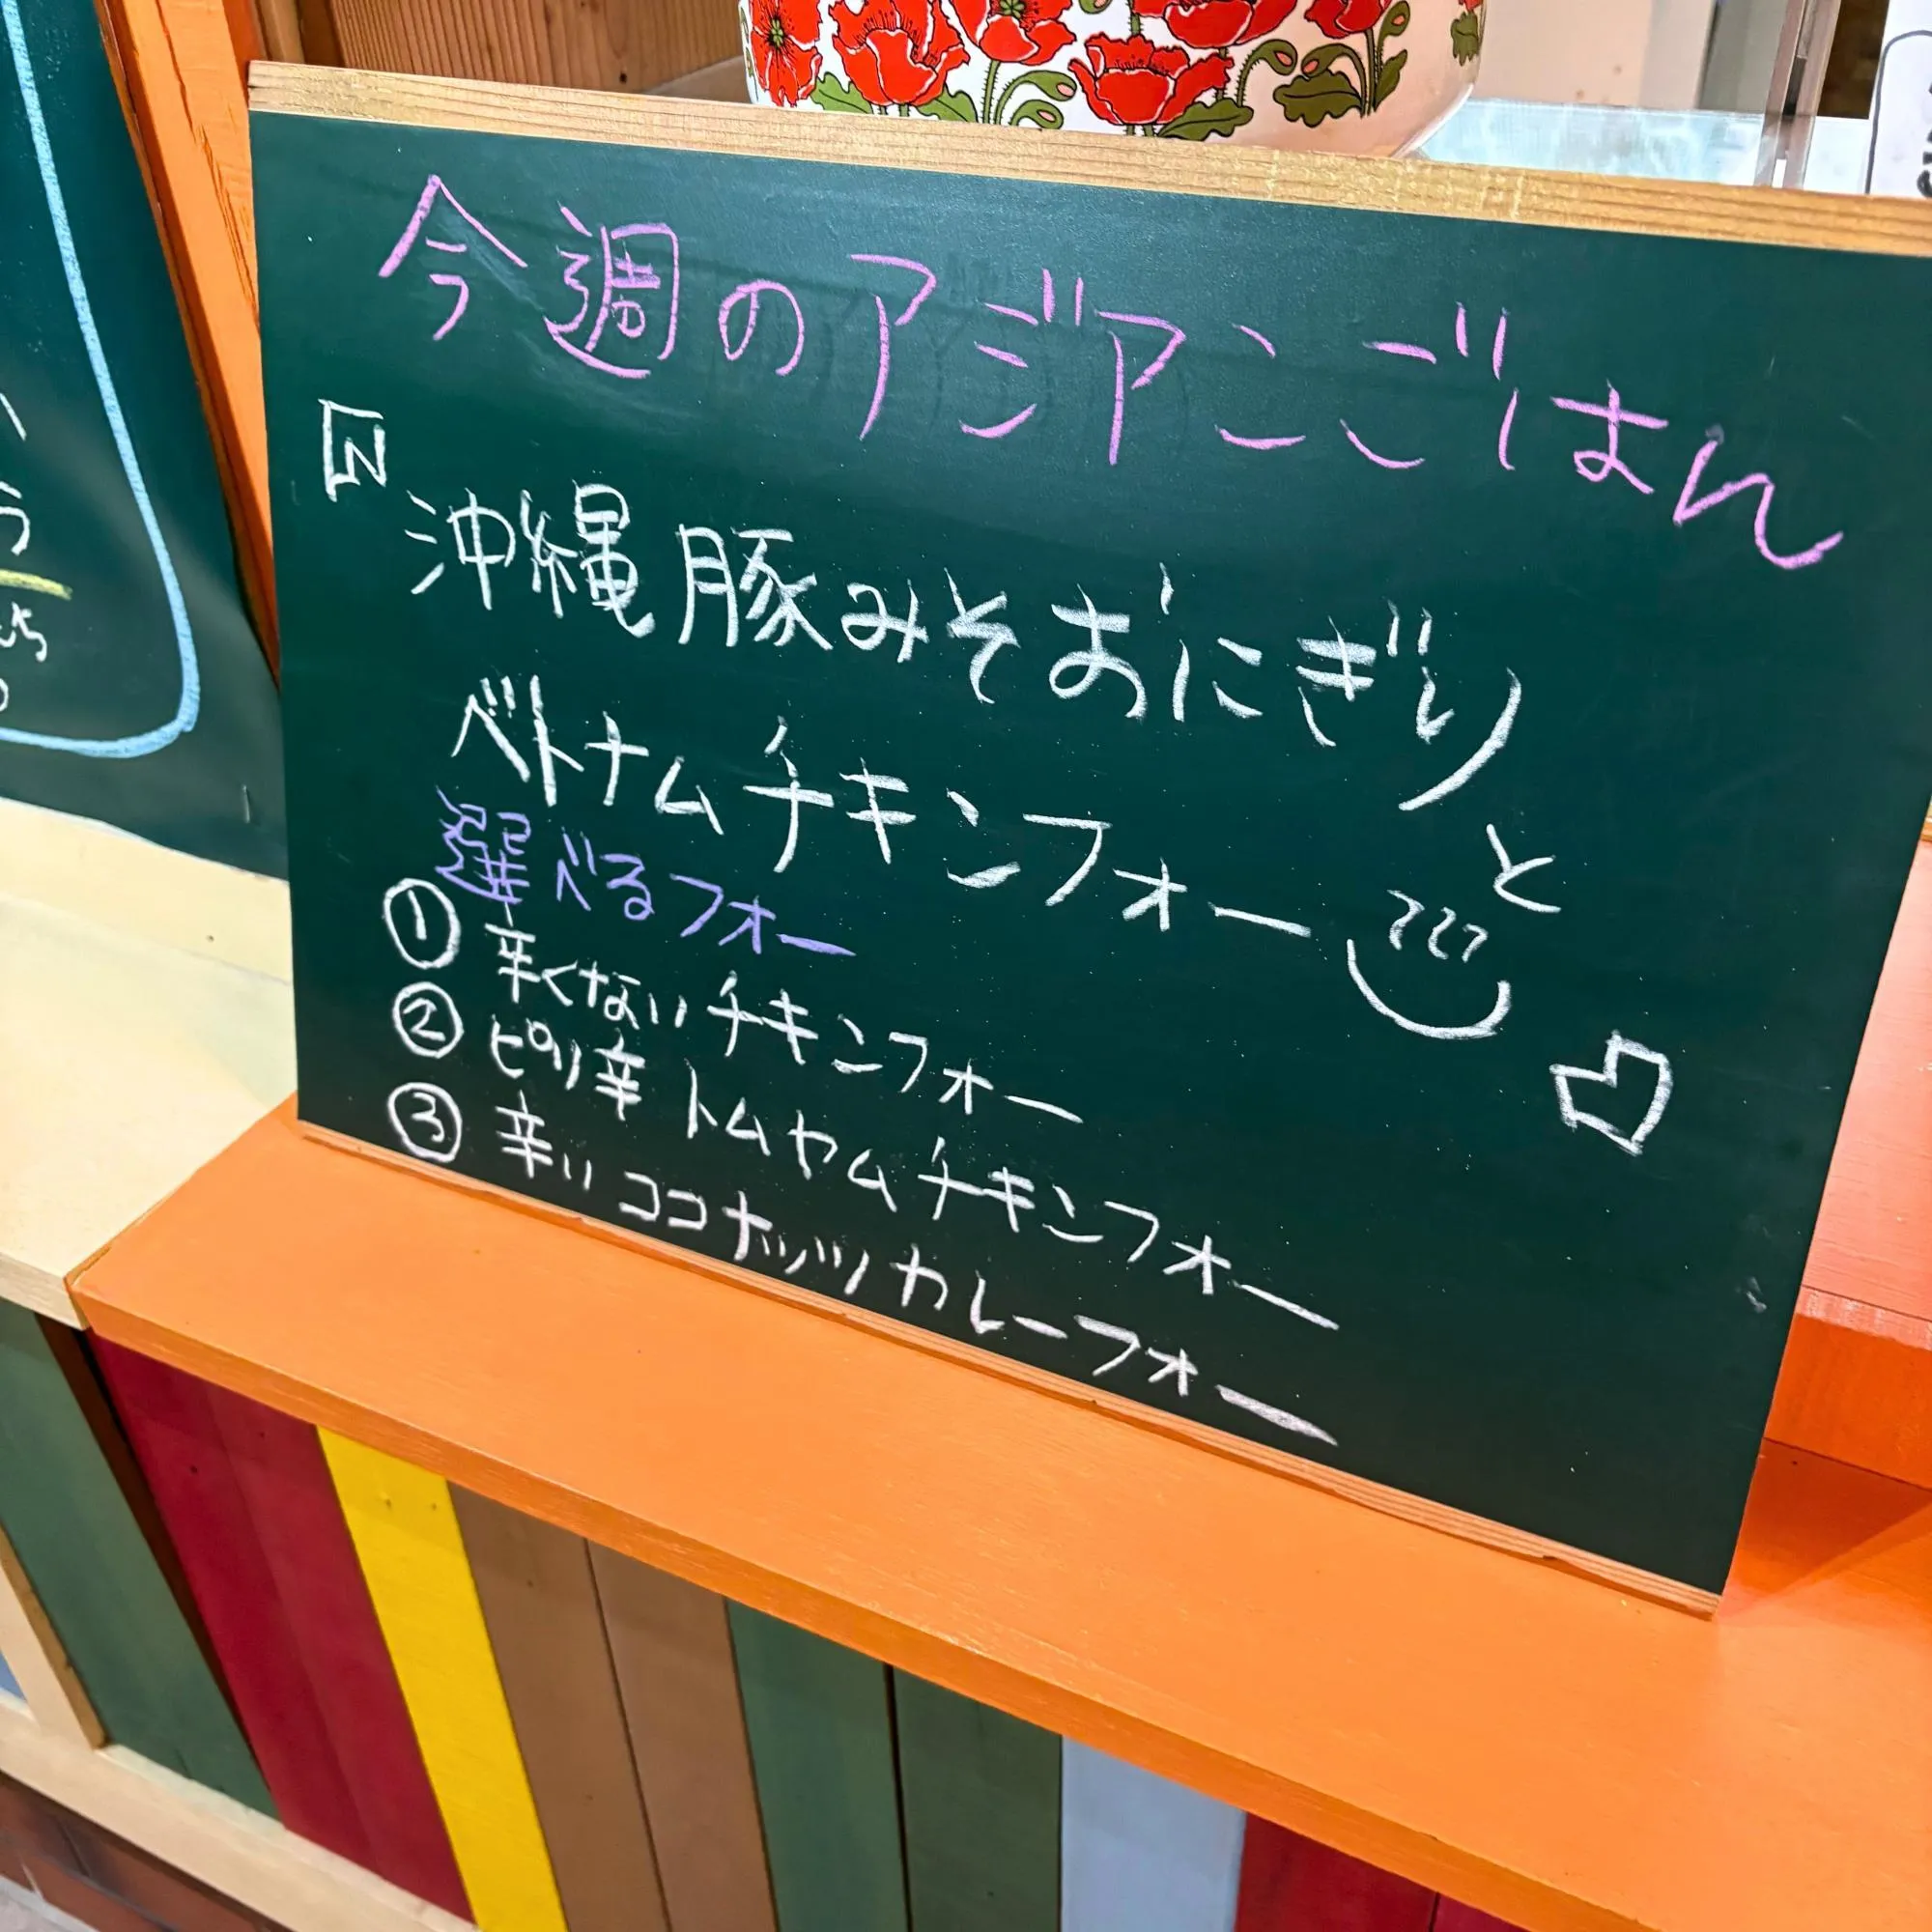 今週のアジアンごはん
N
沖縄豚みそおにぎりと
ベトナムチキンフォー
選べるフォー
① 辛くないチキンフォー
② ピリ辛トムヤムチキンフォー
③ 辛いココナッツカレーフォー